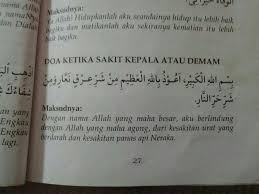 Maksudnya:
Ya Allah! Hidupkanlah aku seandainya hidup itu lebih baik
bagiku dan matikanlah aku sekiranya kematian itu lebih
baik bagiku.
DOA KETIKA SAKIT KEPALA ATAU DEMAM
بِسْمِ اللهِ الْكَبِيْرِ، أَعُوْذُ بِاللهِ الْعَظِيْمِ مِنْ شَرِّ عِرْقٍ نَعَّارٍ وَمِنْ
شَرِّ حَرِّ النَّارِ.
Maksudnya:
Dengan nama Allah yang maha besar, aku berlindung
dengan Allah yang maha agong, dari kesakitan urat yang
berdarah dan kesakitan panas api Neraka.
27